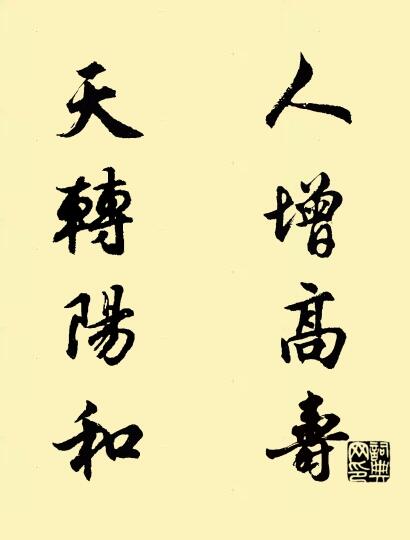 人增高壽
天轉陽和
詞典网印